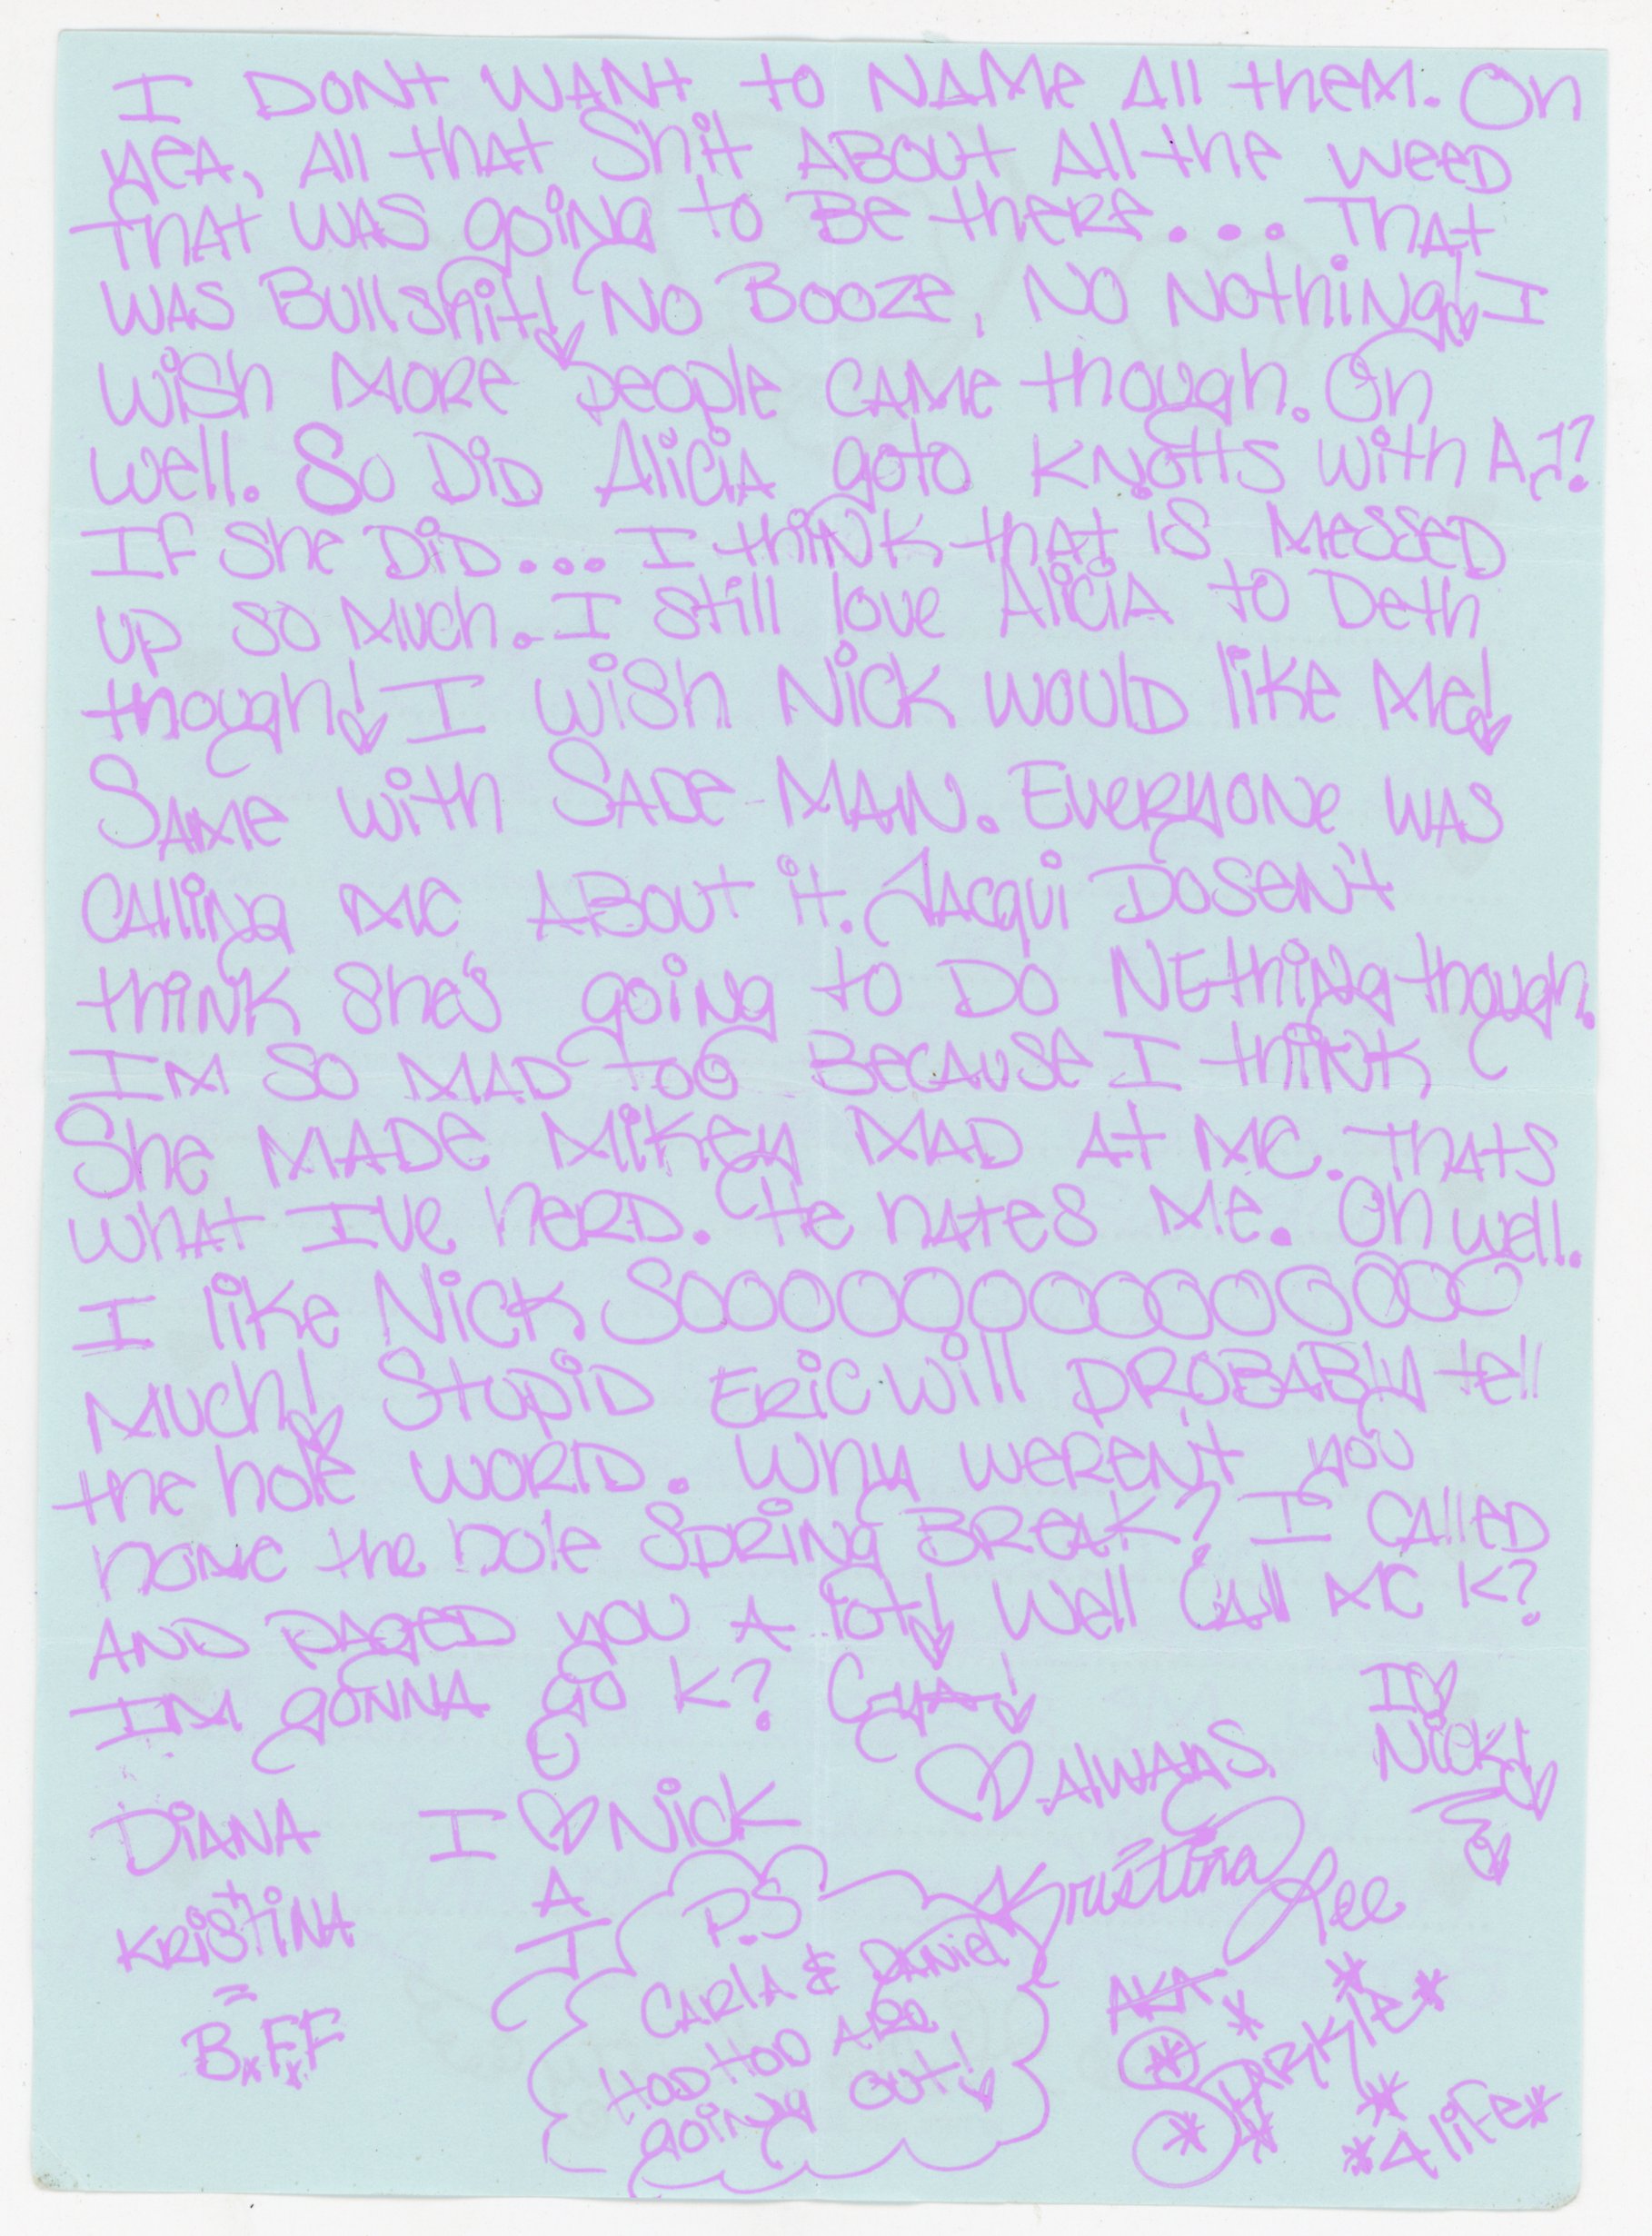 I DONt WANt to NAMe All theM. Oh
yeA, All thAt Shit ABOUt All the weeD
thAt WAS going to Be theRe... ThAt
WAS Bullshit! NO Booze, NO Nothing! I
wish MoRe people CAMe though. Oh
well. So DiD AliciA goto KNotts with A.J?
If she DiD... I thiNK thAt is MesseD
up so Much. I still love AliciA to Deth
though! I wish Nick woulD like Me!
SAMe with SADe-MAN. EveRyoNe WAS
CAlliNg Me ABOUt it. JAcqui DoseN't
thiNK she's goiNg to Do NEthiNg though.
IM so MAD too BecAuse I thiNK
She MADe Mikey MAD At Me. ThAts
whAt I've heRD. He hAtes Me. Oh well.
I like Nick Soooooooooooooooo
Much! StupiD ERic will pRoBABly tell
the hole woRlD. Why weReN't you
hoMe the hole SpRiNg BReAk? I CAlleD
AND pAgeD you A lot! Well CAll Me K?
I'M goNNA go K? CyA!
I ♡
Nick!
♡ AlwAys
DiANA
I ♡ Nick
Kristina Lee
+
KRistiNA
=
B.F.F
A
J
P.S
CARlA & DANiel
HodHod ARe
goiNg out!
AKA
*SpARkle*
*4 life*